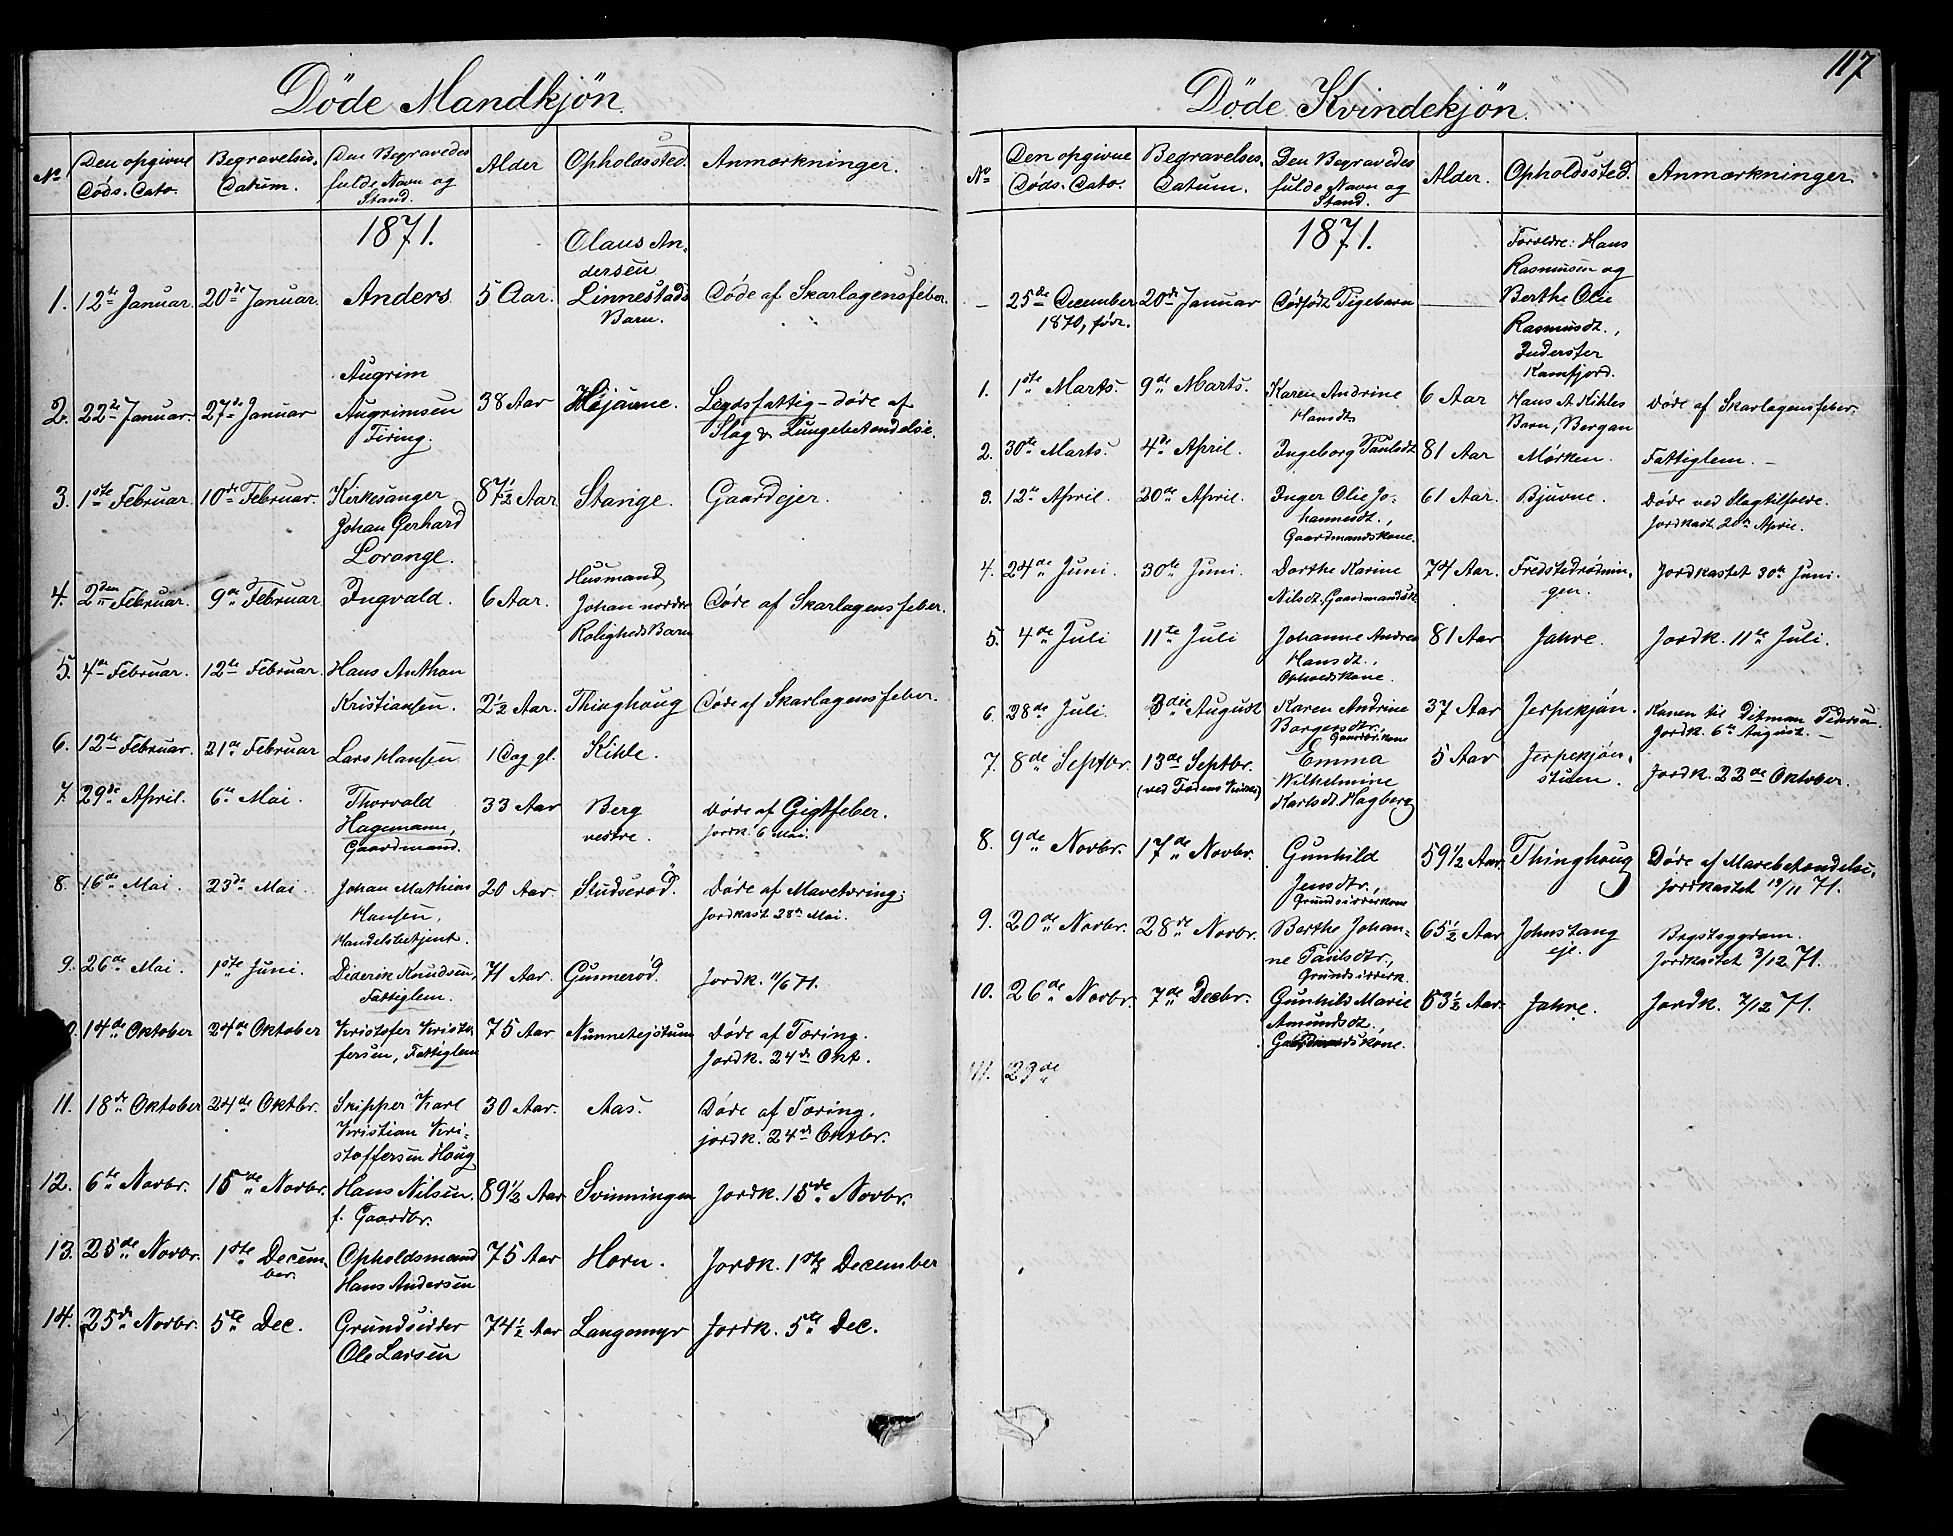 Döde Mandkjön.
No
Den opgivne Døds-Dato.
Begravelses-Datum.
Den Begravedes fulde Navn og Stand.
Alder
Opholdssted.
Anmærkninger.
1871.
1. 12te Januar. 20de Januar. Anders 5 Aar. Olaus Andersen Linnestads Barn. Døde af Skarlagensfeber.
2. 22de Januar. 27de Januar Augrim Augrimsen Firing. 38 Aar Hejanne. Lægdsfattig - døde af Slag & Lungebetændelse.
3. 1ste Februar. 10de Februar. Kirkesanger Johan Gerhard Lorange. 87½ Aar. Stange. Gaardejer.
4. 2den Februar. 9de Februar Ingvald. 6 Aar. Husmand Johan nordre Roligheds Barn Døde af Skarlagensfeber.
5. 4de Februar. 12te Februar. Hans Anthon Kristiansen. 2½ Aar. Thinghoug Døde af Skarlagensfeber.
6. 12te Februar. 21de Februar Lars Hansen 1 Dag gl. Kihle.
7. 29de April. 6te Mai. Thorvald Hagemann, Gaardmand. 33 Aar Berg vestre. Døde af Gigtfeber. Jordk. 6 Mai.
8. 16de Mai. 23de Mai. Johan Mathias Hansen, Handelsbetjent. 20 Aar Studserød. Døde af Mavetæring; Jordkast. 28de Mai.
9. 26de Mai. 1ste Juni. Diderik Knudsen, Fattiglem. 71 Aar. Gunnerød. Jordk. 11/6 71.
14de Oktober 24de Oktober Kristofer Kristofersen, Fattiglem 75 Aar Nunnetejstuen Døde af Tæring. Jordk. 24de Okt.
11. 18de Oktober 24de Oktbr. Skipper Karl Kristian Kristoffersen Houg 30 Aar. Aas. Døde af Tæring. jordk. 24de Oktbr.
12. 6te Novbr. 15de Novbr. Hans Nilsen. f. Gaardbr. 89½ Aar Svinningen Jordk. 15de Novbr.
13. 25de Novbr. 1ste December. Opholdsmand Hans Andersen 75 Aar Horn. Jordk. 1ste December
14. 25de Novbr. 5te Dec. Grundsidder Ole Larsen 74½ Aar Langemyr Jordk. 5te Dec.
117
Döde Kvindekjön.
No
Den opgivne Døds-Dato.
Begravelses-Datum.
Den Begravedes fulde Navn og Stand.
Alder.
Opholdssted.
Anmærkninger.
1871.
— 25de December 1870, født. 20de Januar Dødfødt Pigebarn — Forældre: Hans Rasmusen og Berthe Olie Rasmusdt., Inderster Kamfjord.
1. 1ste Marts. 9de Marts. Karen Andrine Hansdt. 6 Aar Hans A. Kihles Barn, Bergan Døde af Skarlagensfeber.
2. 30te Marts. 4de April. Ingeborg Paulsdt 81 Aar Mørken. Fattiglem. —
3. 12te April. 20de April. Inger Olie Johannesdt., Gaardmandskone. 61 Aar. Bjuvne. Døde ved Slagtilfælde. Jordkast. 20de April.
4. 24de Juni. 30te Juni. Dorthe Karine Nilsdt. Gaardmandsk. 74 Aar. Fredstedrødningen. Jordkastet 30te Juni.
5. 4de Juli 11te Juli Johanne Andrea Hansdt., Opholdskone. 81 Aar Jahre. Jordk. 11te Juli.
6. 28de Juli. 3die August Karen Andrine Borgersdtr. Gaardbr.kone 37 Aar Jerpekjøn. Konen til Ditman Pedersen. Jordk. 6te August. —
7. 8de Septbr. 13de Septbr. (ved Fødens Kirke) Emma Wilhelmine Karlsdt. Hagberg 5 Aar Jerpekjønstuen. Jordk. 22de Oktober.
8. 9de Novbr. 17de Novbr. Gunhild Jensdtr., Grundsidderkone 59½ Aar. Thinghoug Døde af Mavebetændelse, Jordkastet 19/11 71.
9. 20de Novbr. 28de Novbr. Berthe Johanne Paulsdtr., Grundsidderk. 65½ Aar. Johnstang eje. Brystsygdom. Jordkastet 3/12 71.
10. 26de Novbr. 7de Decbr. Gunhild Marie Amundsdt., Gaardmandskone. 53½ Aar. Jahre. Jordk. 7/12 71.
11. 29de